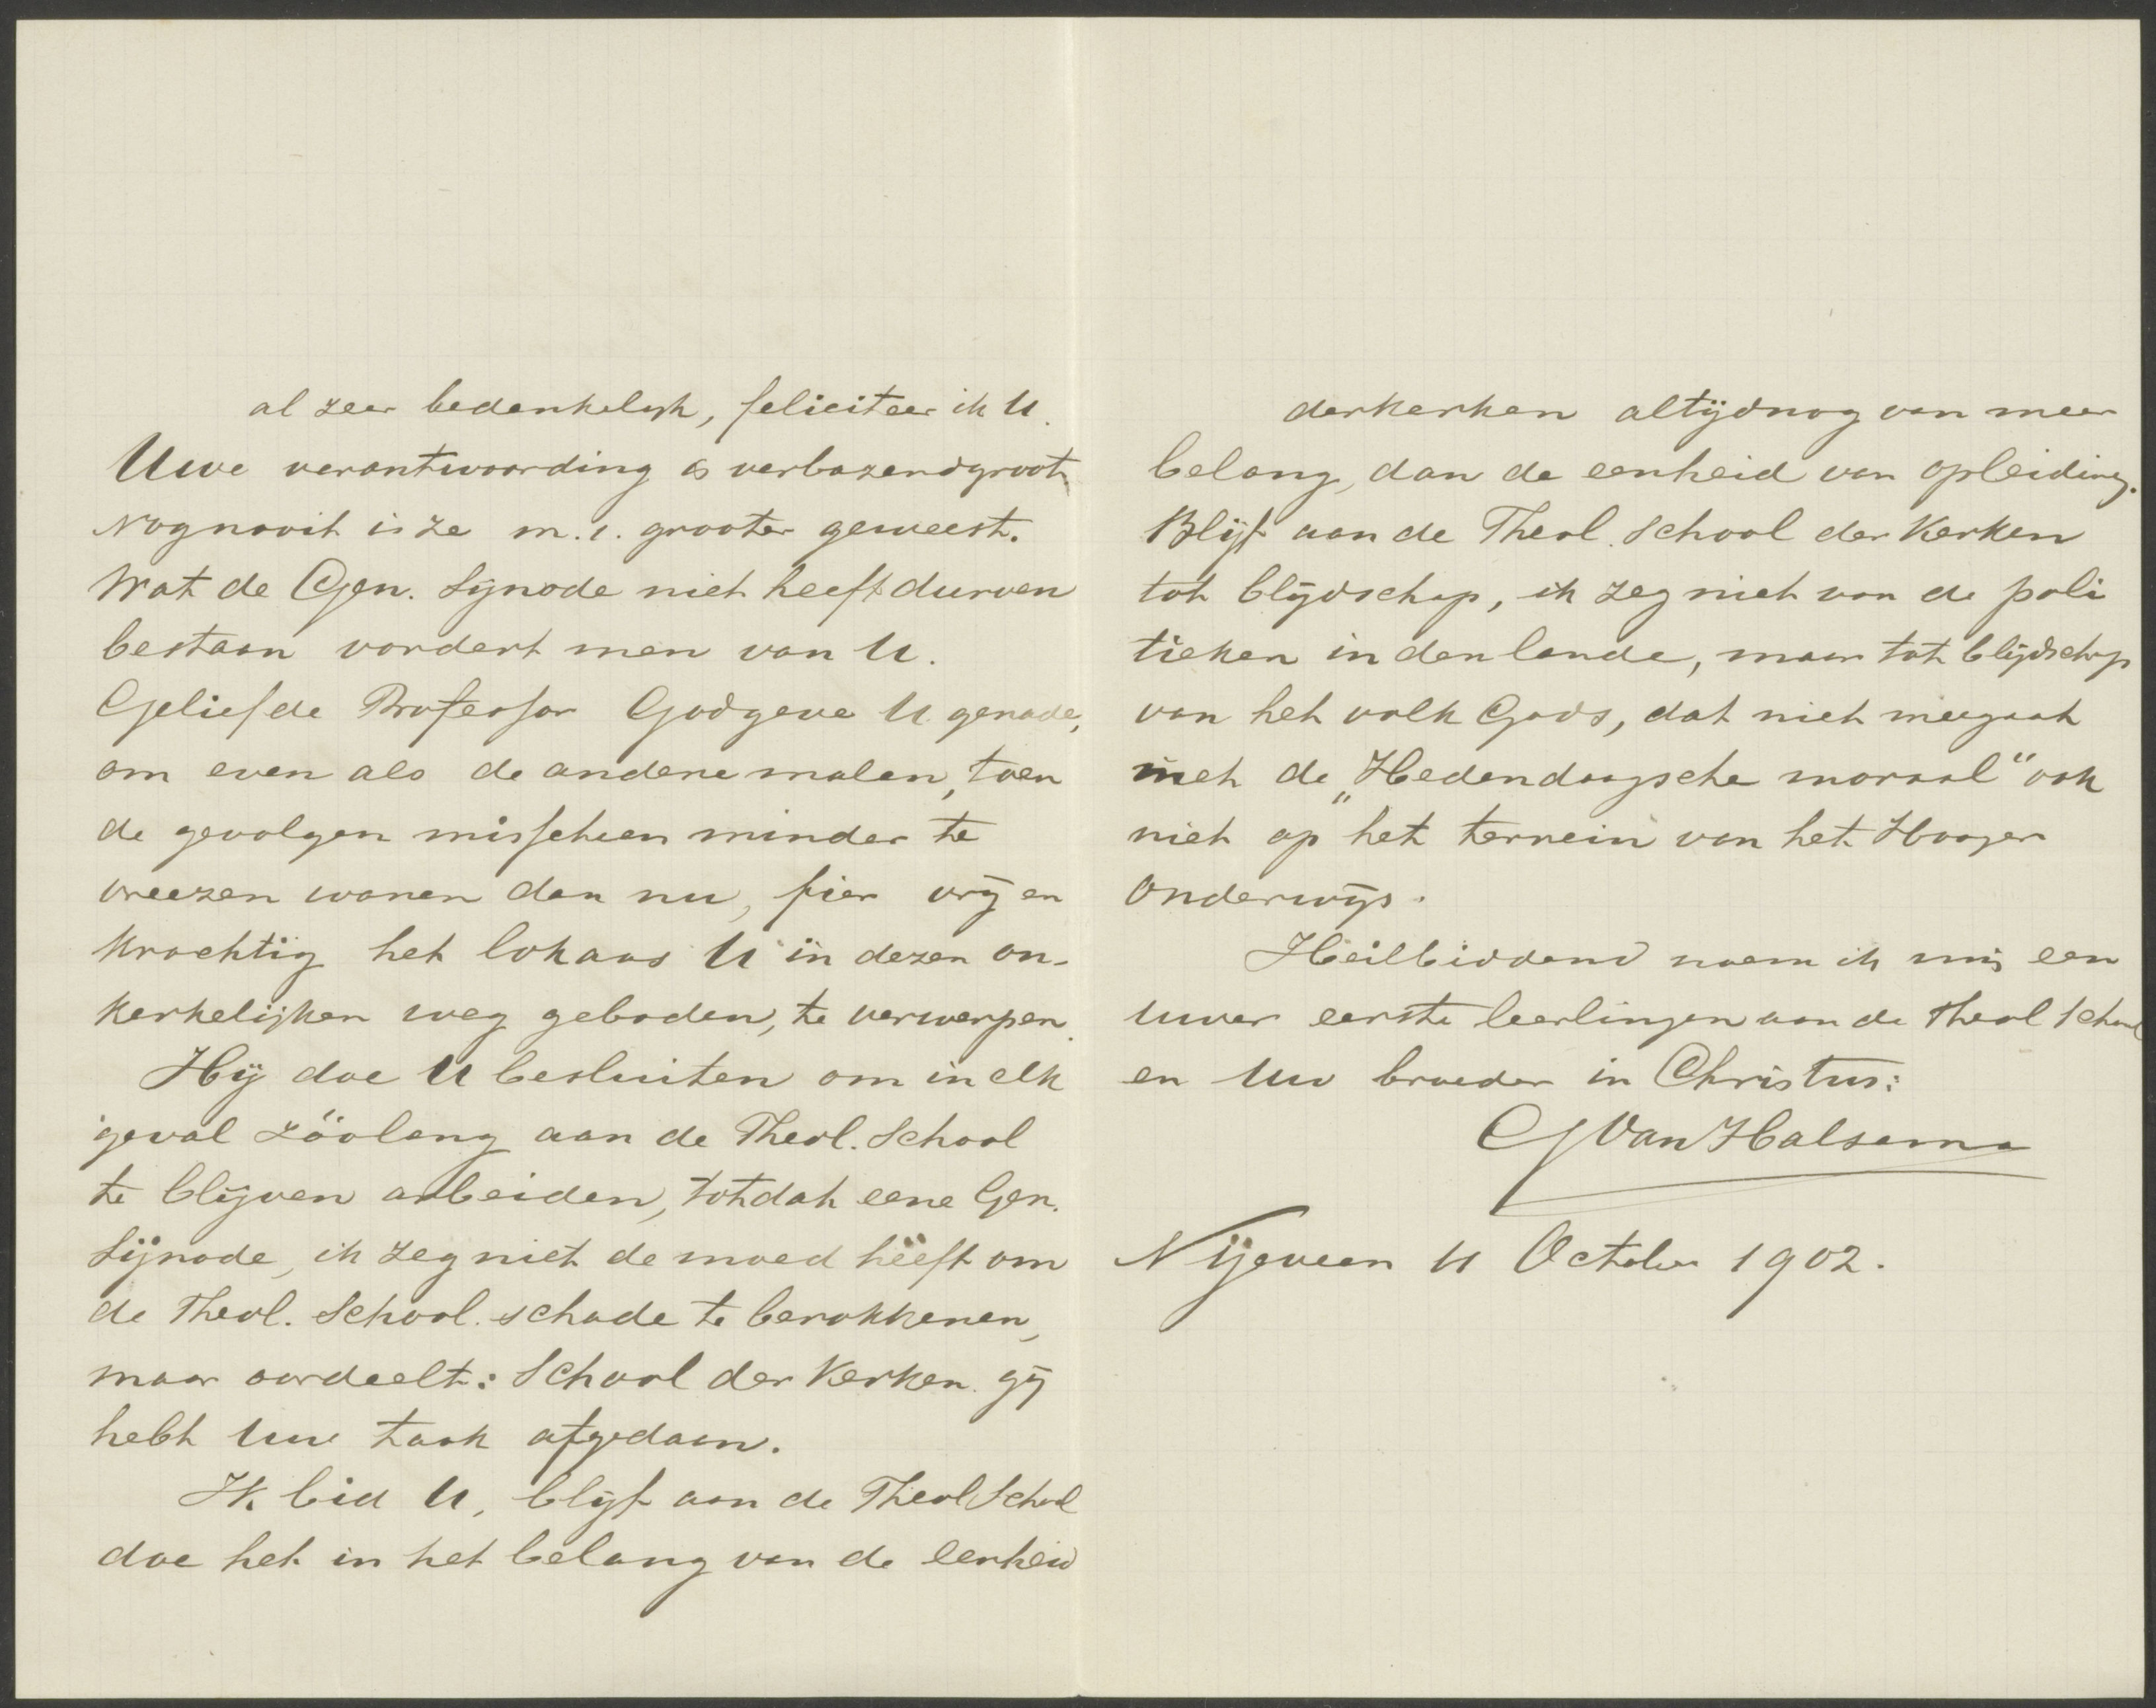 al zeer bedenkelijk, feliciteer ik U.
Uwe verantwoording is verbazendgroot.
Nognooit is ze m.i. grooter geweest.
Wat de Gen. Sijnode niet heeft durven
bestaan vordert men van U.
Geliefde Professor Godgeve U genade,
om even als de andere malen, toen
de gevolgen misschien minder te
vreezen waren dan nu, fier vrij en
krachtig het lokaas U in dezen on-
kerkelijken weg geboden, te verwerpen.
Hij doe U besluiten om in elk
geval zóólang aan de Theol. School
te blijven arbeiden, totdat eene Gen.
Sijnode, ik zeg niet de moed heeft om
de Theol. School schade te berokkenen,
maar oordeelt: School der Kerken gij
hebt Uw taak afgedaan.
Ik bid U, blijf aan de Theol School
doe het in het belang van de eenheid
derkerken altijdnog van meer
belang, dan de eenheid van opleiding.
Blijf aan de Theol. School der Kerken
tot blijdschap, ik zeg niet van de poli
tieken in den lande, maar tot blijdschap
van het volk Gods, dat niet meegaat
met de „Hedendaagsche moraal" ook
niet op het terrein van het Hooger
Onderwijs.
Heilbiddend noem ik mij een
Uwer eerste leerlingen aan de Theol School
en Uw broeder in Christus:
G Van Halsema
Nijeveen 11 October 1902.